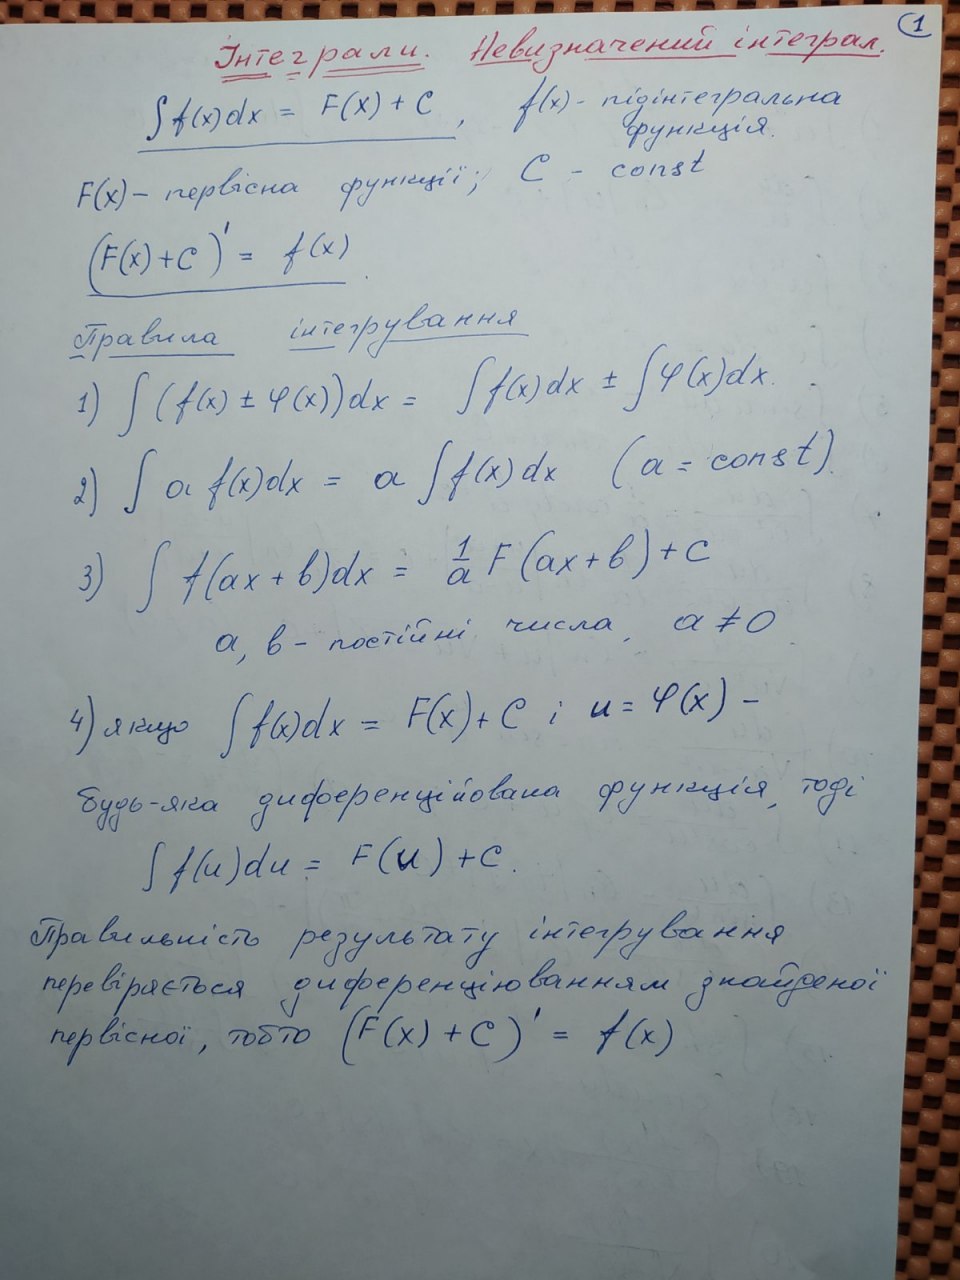 1
Інтеграли. Невизначений інтеграл.
∫f(x)dx = F(x) + C, f(x) - підінтегральна
функція.
F(x) - первісна функції; C - const
(F(x) + C)' = f(x).
Правила інтегрування
1) ∫(f(x) ± φ(x))dx = ∫f(x)dx ± ∫φ(x)dx.
2) ∫a f(x)dx = a ∫f(x)dx (a = const).
3) ∫f(ax + b)dx = 1/a F(ax + b) + C
a, b - постійні числа, a ≠ 0
4) якщо ∫f(x)dx = F(x) + C і u = φ(x) -
будь-яка диференційована функція, тоді
∫f(u)du = F(u) + C.
Правильність результату інтегрування
перевіряється диференціюванням знайденої
первісної, тобто (F(x) + C)' = f(x)